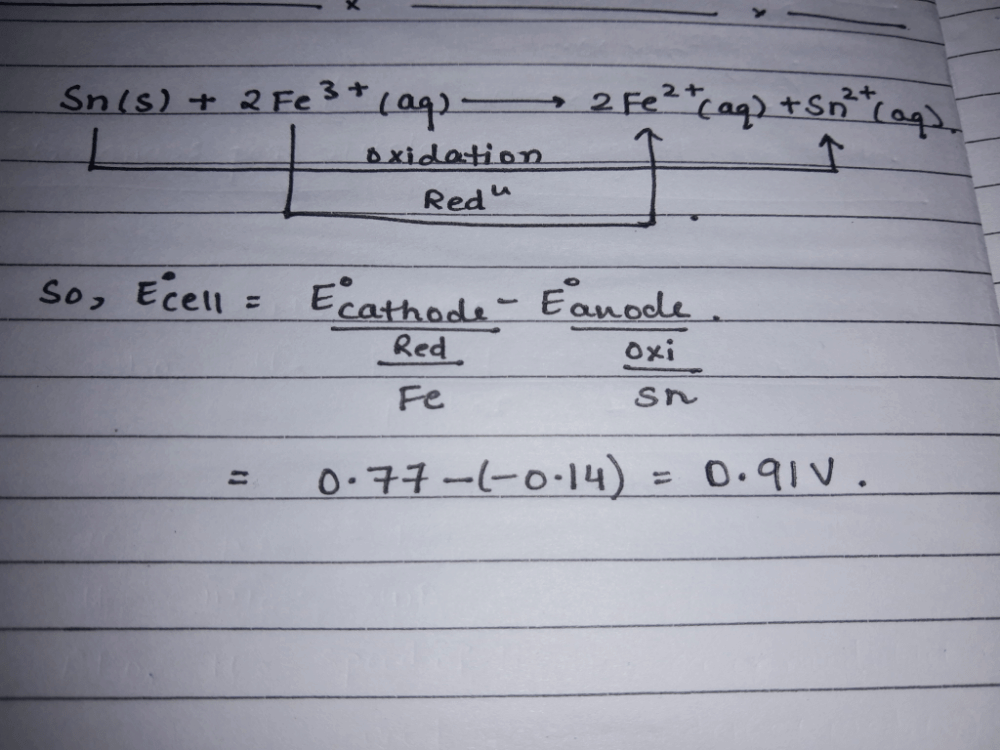 Sn(s) + 2Fe³⁺(aq) ⟶ 2Fe²⁺(aq) + Sn²⁺(aq).
oxidation
Redⁿ
So, E°cell = E°cathode - E°anode.
Red oxi
Fe Sn
= 0.77 -(-0.14) = 0.91V.